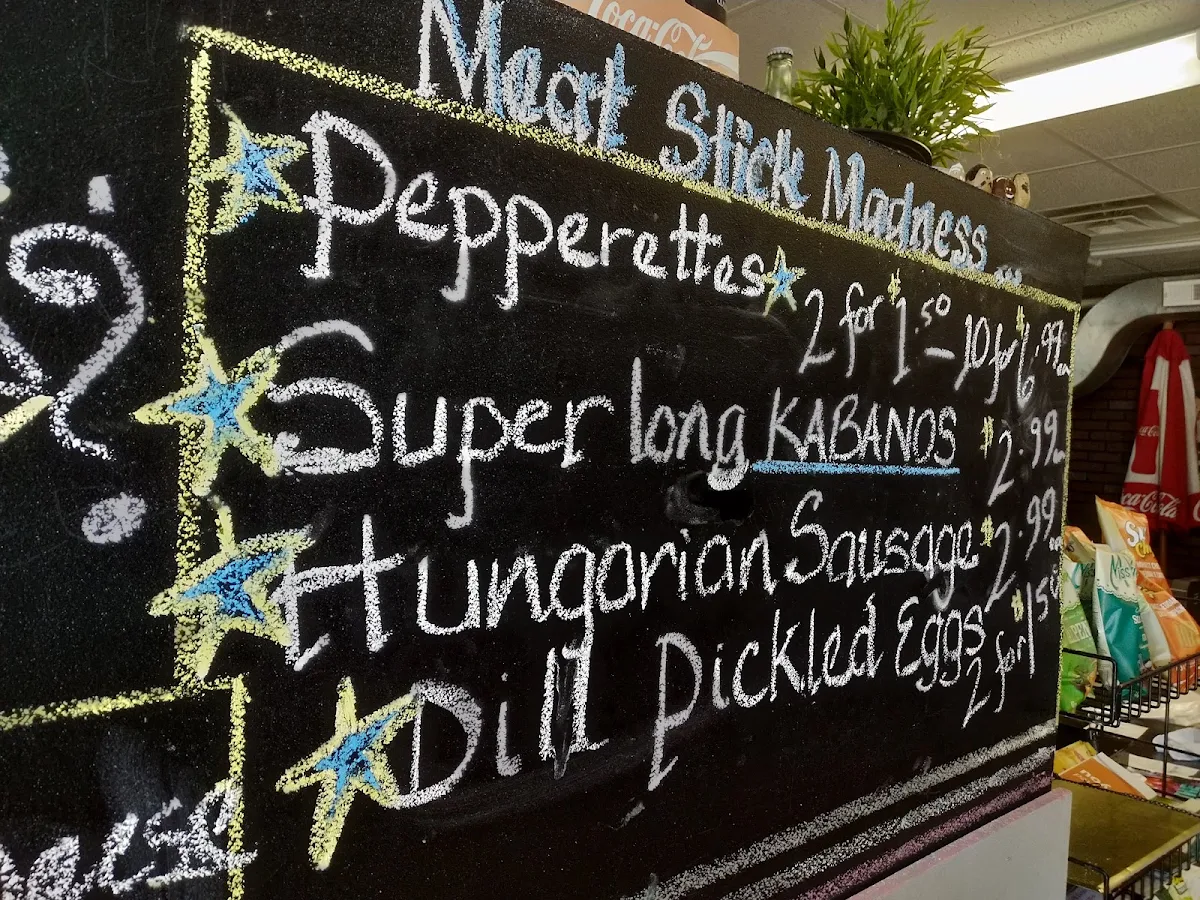 Coca-Cola
Meat Stick Madness...
Pepperettes 2 for $1.50 - 10 for $6.99
Super long KABANOS $2.99
Hungarian Sausage $2.99
Dill Pickled Eggs 2 for $1.50
Coca-Cola